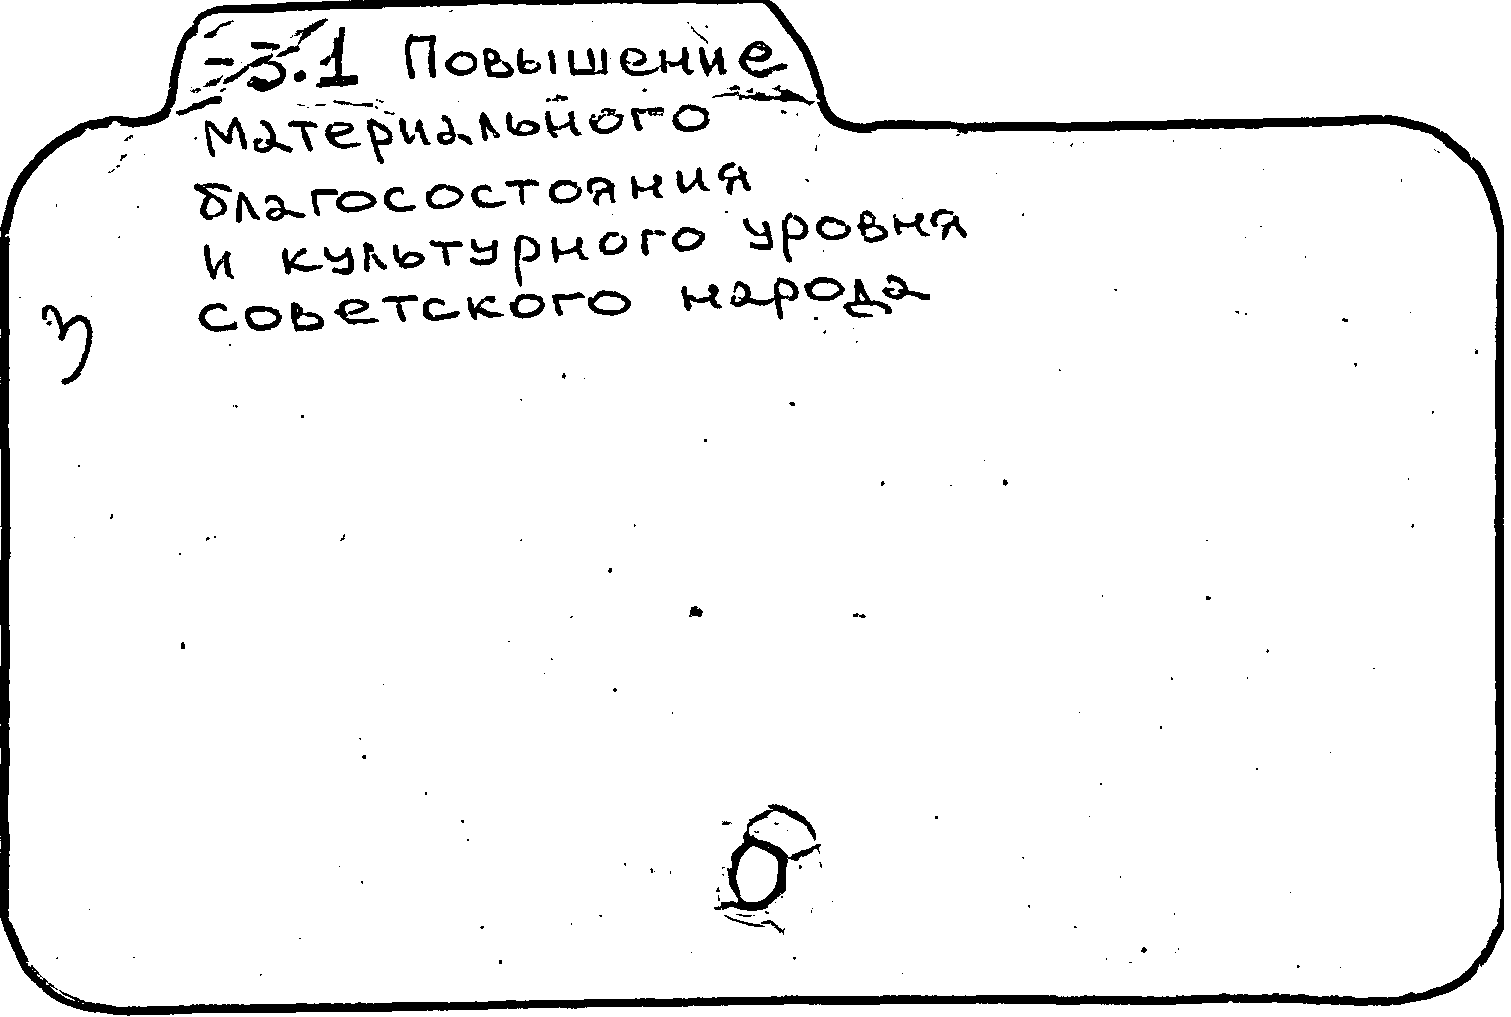 3.1 Повышение
материального
благосостояния
и культурного уровня
советского народа